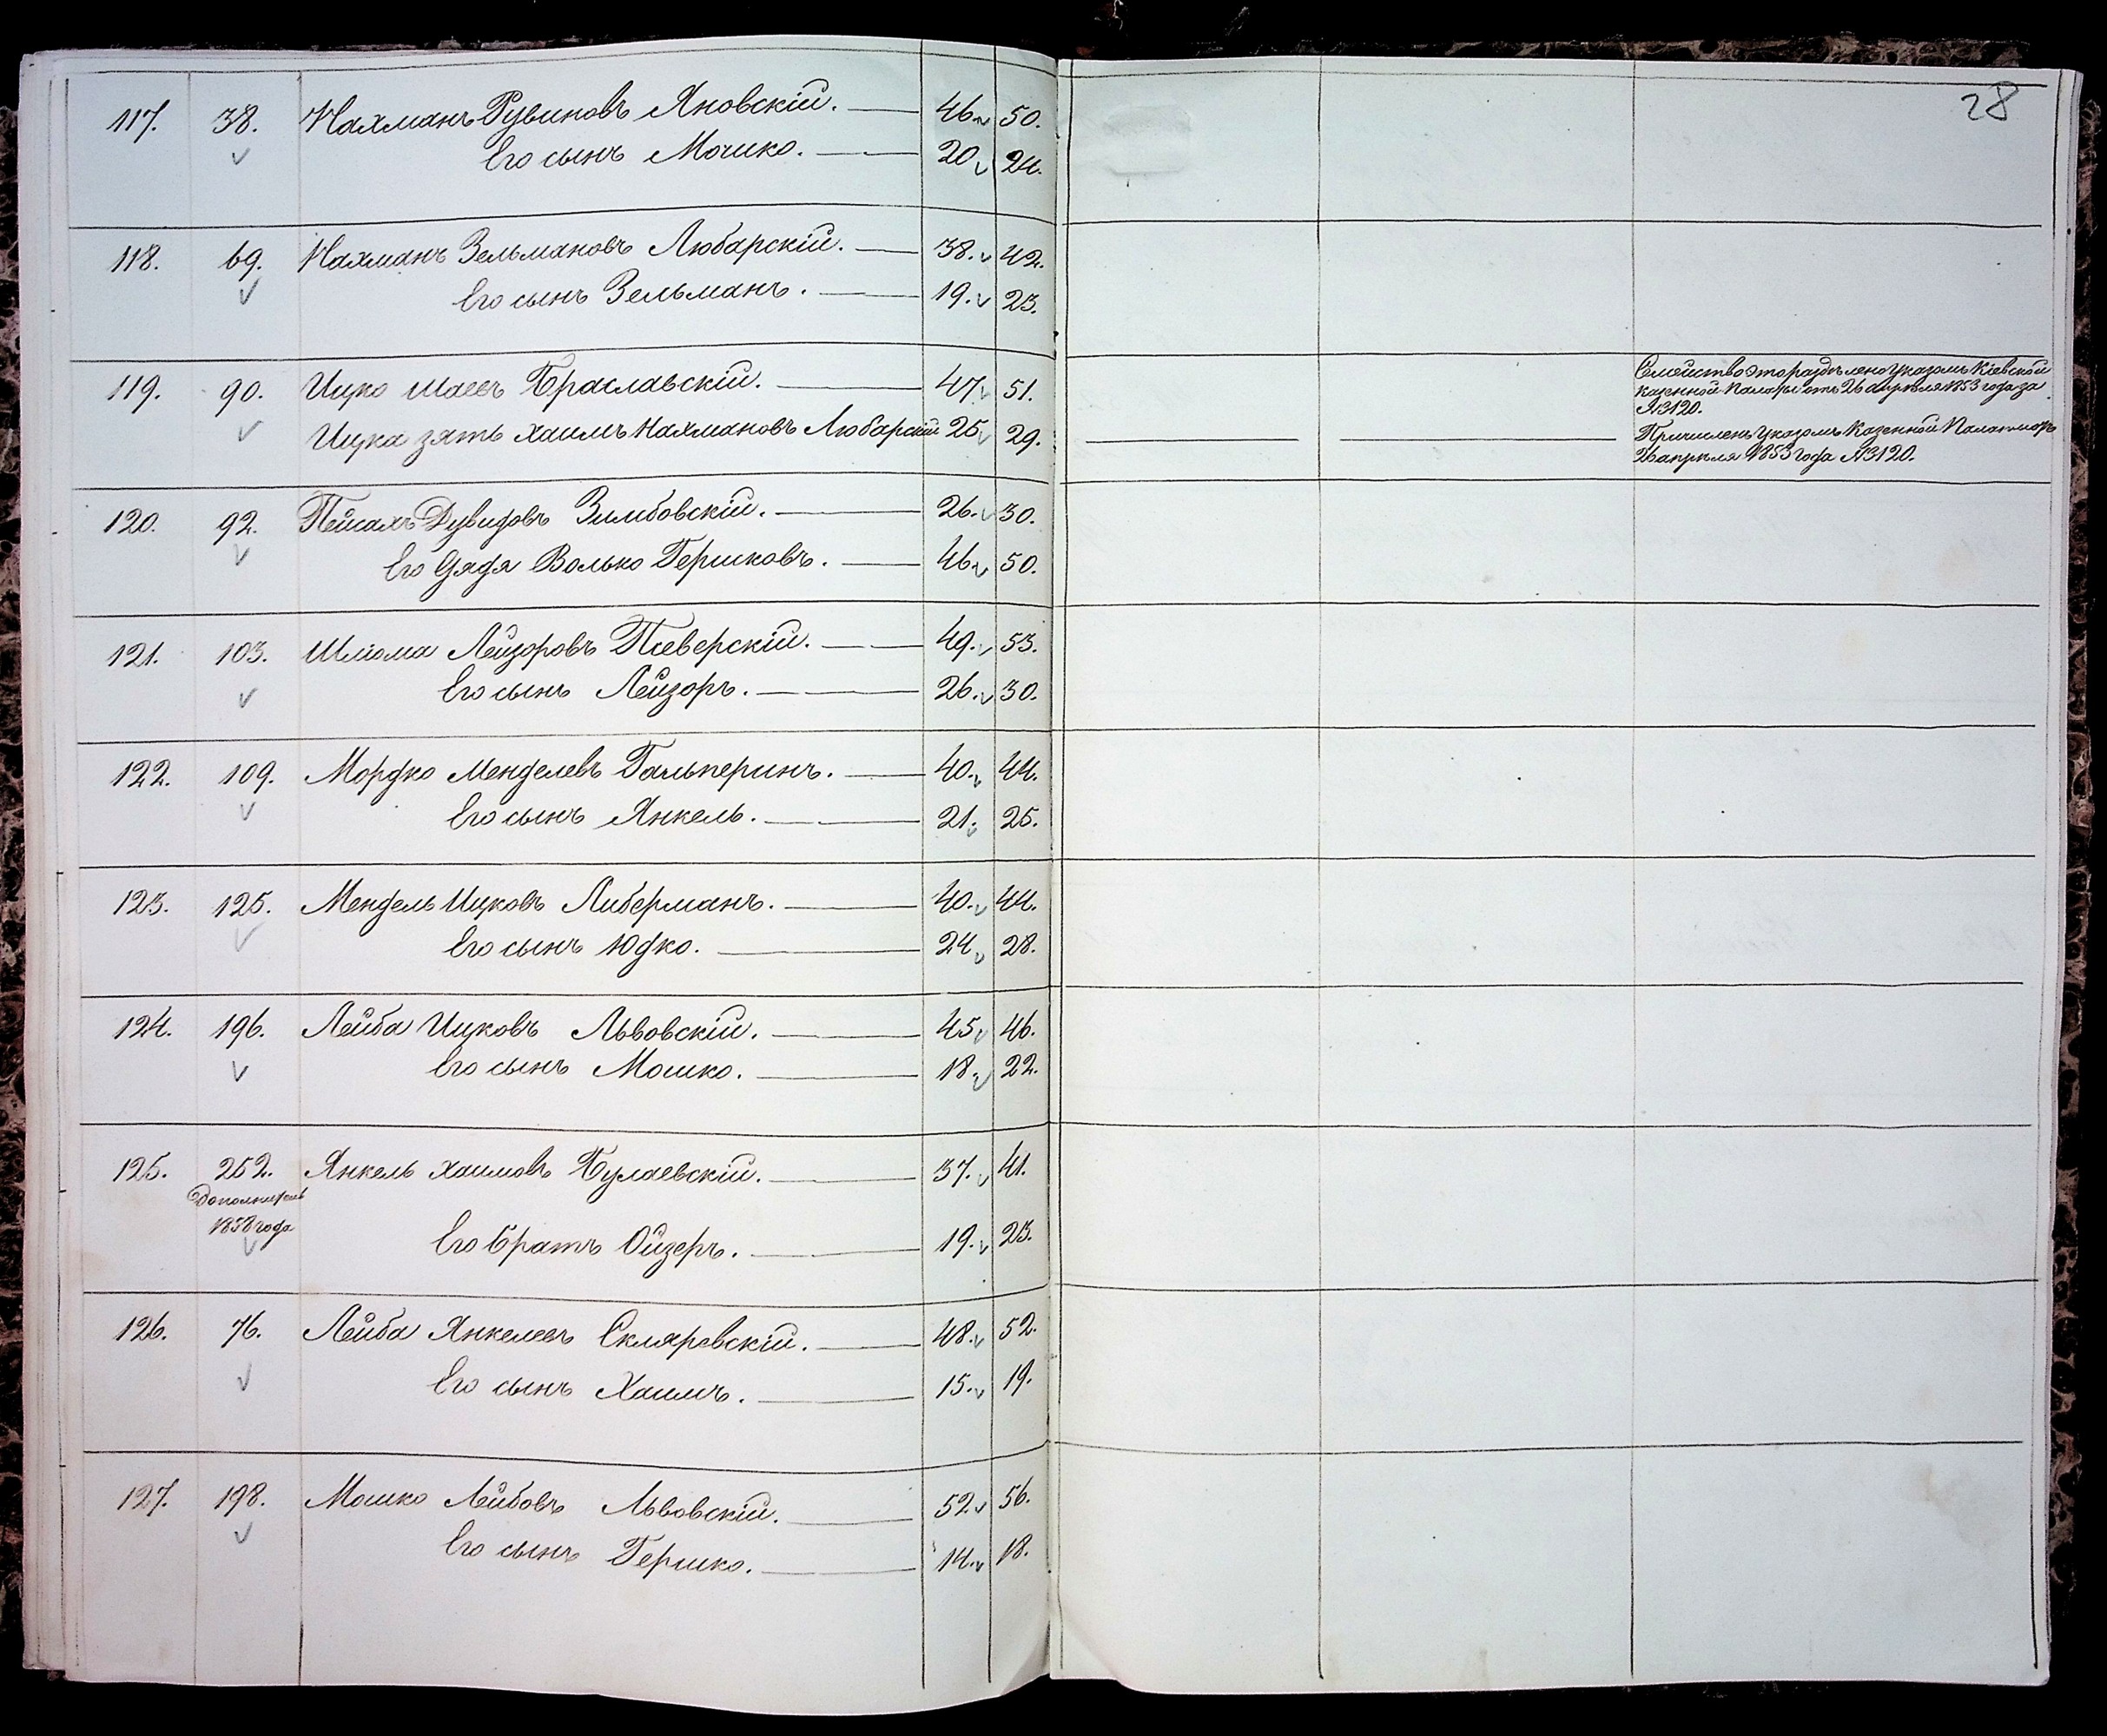 28
117. 38. Нахманъ Рувиновъ Яновскій. 46. 50.
Его сынъ Мошко. 20. 24.
118. 69. Нахманъ Зельмановъ Любарскій. 38. 42.
Его сынъ Зельманъ. 19. 23.
119. 90. Ицко Шаевъ Браславскій. 47. 51.
Семейство это раздѣлено Указомъ Кіевской
Казенной Палаты отъ 26 апрѣля 1853 года за
№3120.
Ицка зять Хаимъ Нахмановъ Любарскій 25. 29.
Причисленъ Указомъ Казенной Палаты отъ
26 апрѣля 1853 года №3120.
120. 92. Пейсахъ Дувидовъ Зимбовскій. 26. 30.
Его дядя Волько Гершковъ. 46. 50.
121. 103. Шліома Лейзоровъ Тееверскій. 49. 53.
Его сынъ Лейзоръ. 26. 30.
122. 109. Мордко Менделевъ Гальперинъ. 40. 44.
Его сынъ Янкель. 21. 25.
123. 125. Мендель Ицковъ Либерманъ. 40. 44.
Его сынъ Юдко. 24. 28.
124. 196. Лейба Ицковъ Львовскій. 45. 46.
Его сынъ Мошко. 18. 22.
125. 252. Янкель Хаимовъ Булаевскій. 37. 41.
1858 года
Его братъ Ойзеръ. 19. 23.
126. 76. Лейба Янкелевъ Скляревскій. 48. 52.
Его сынъ Хаимъ. 15. 19.
127. 198. Мошко Лейбовъ Львовскій. 52. 56.
Его сынъ Гершко. 14. 18.